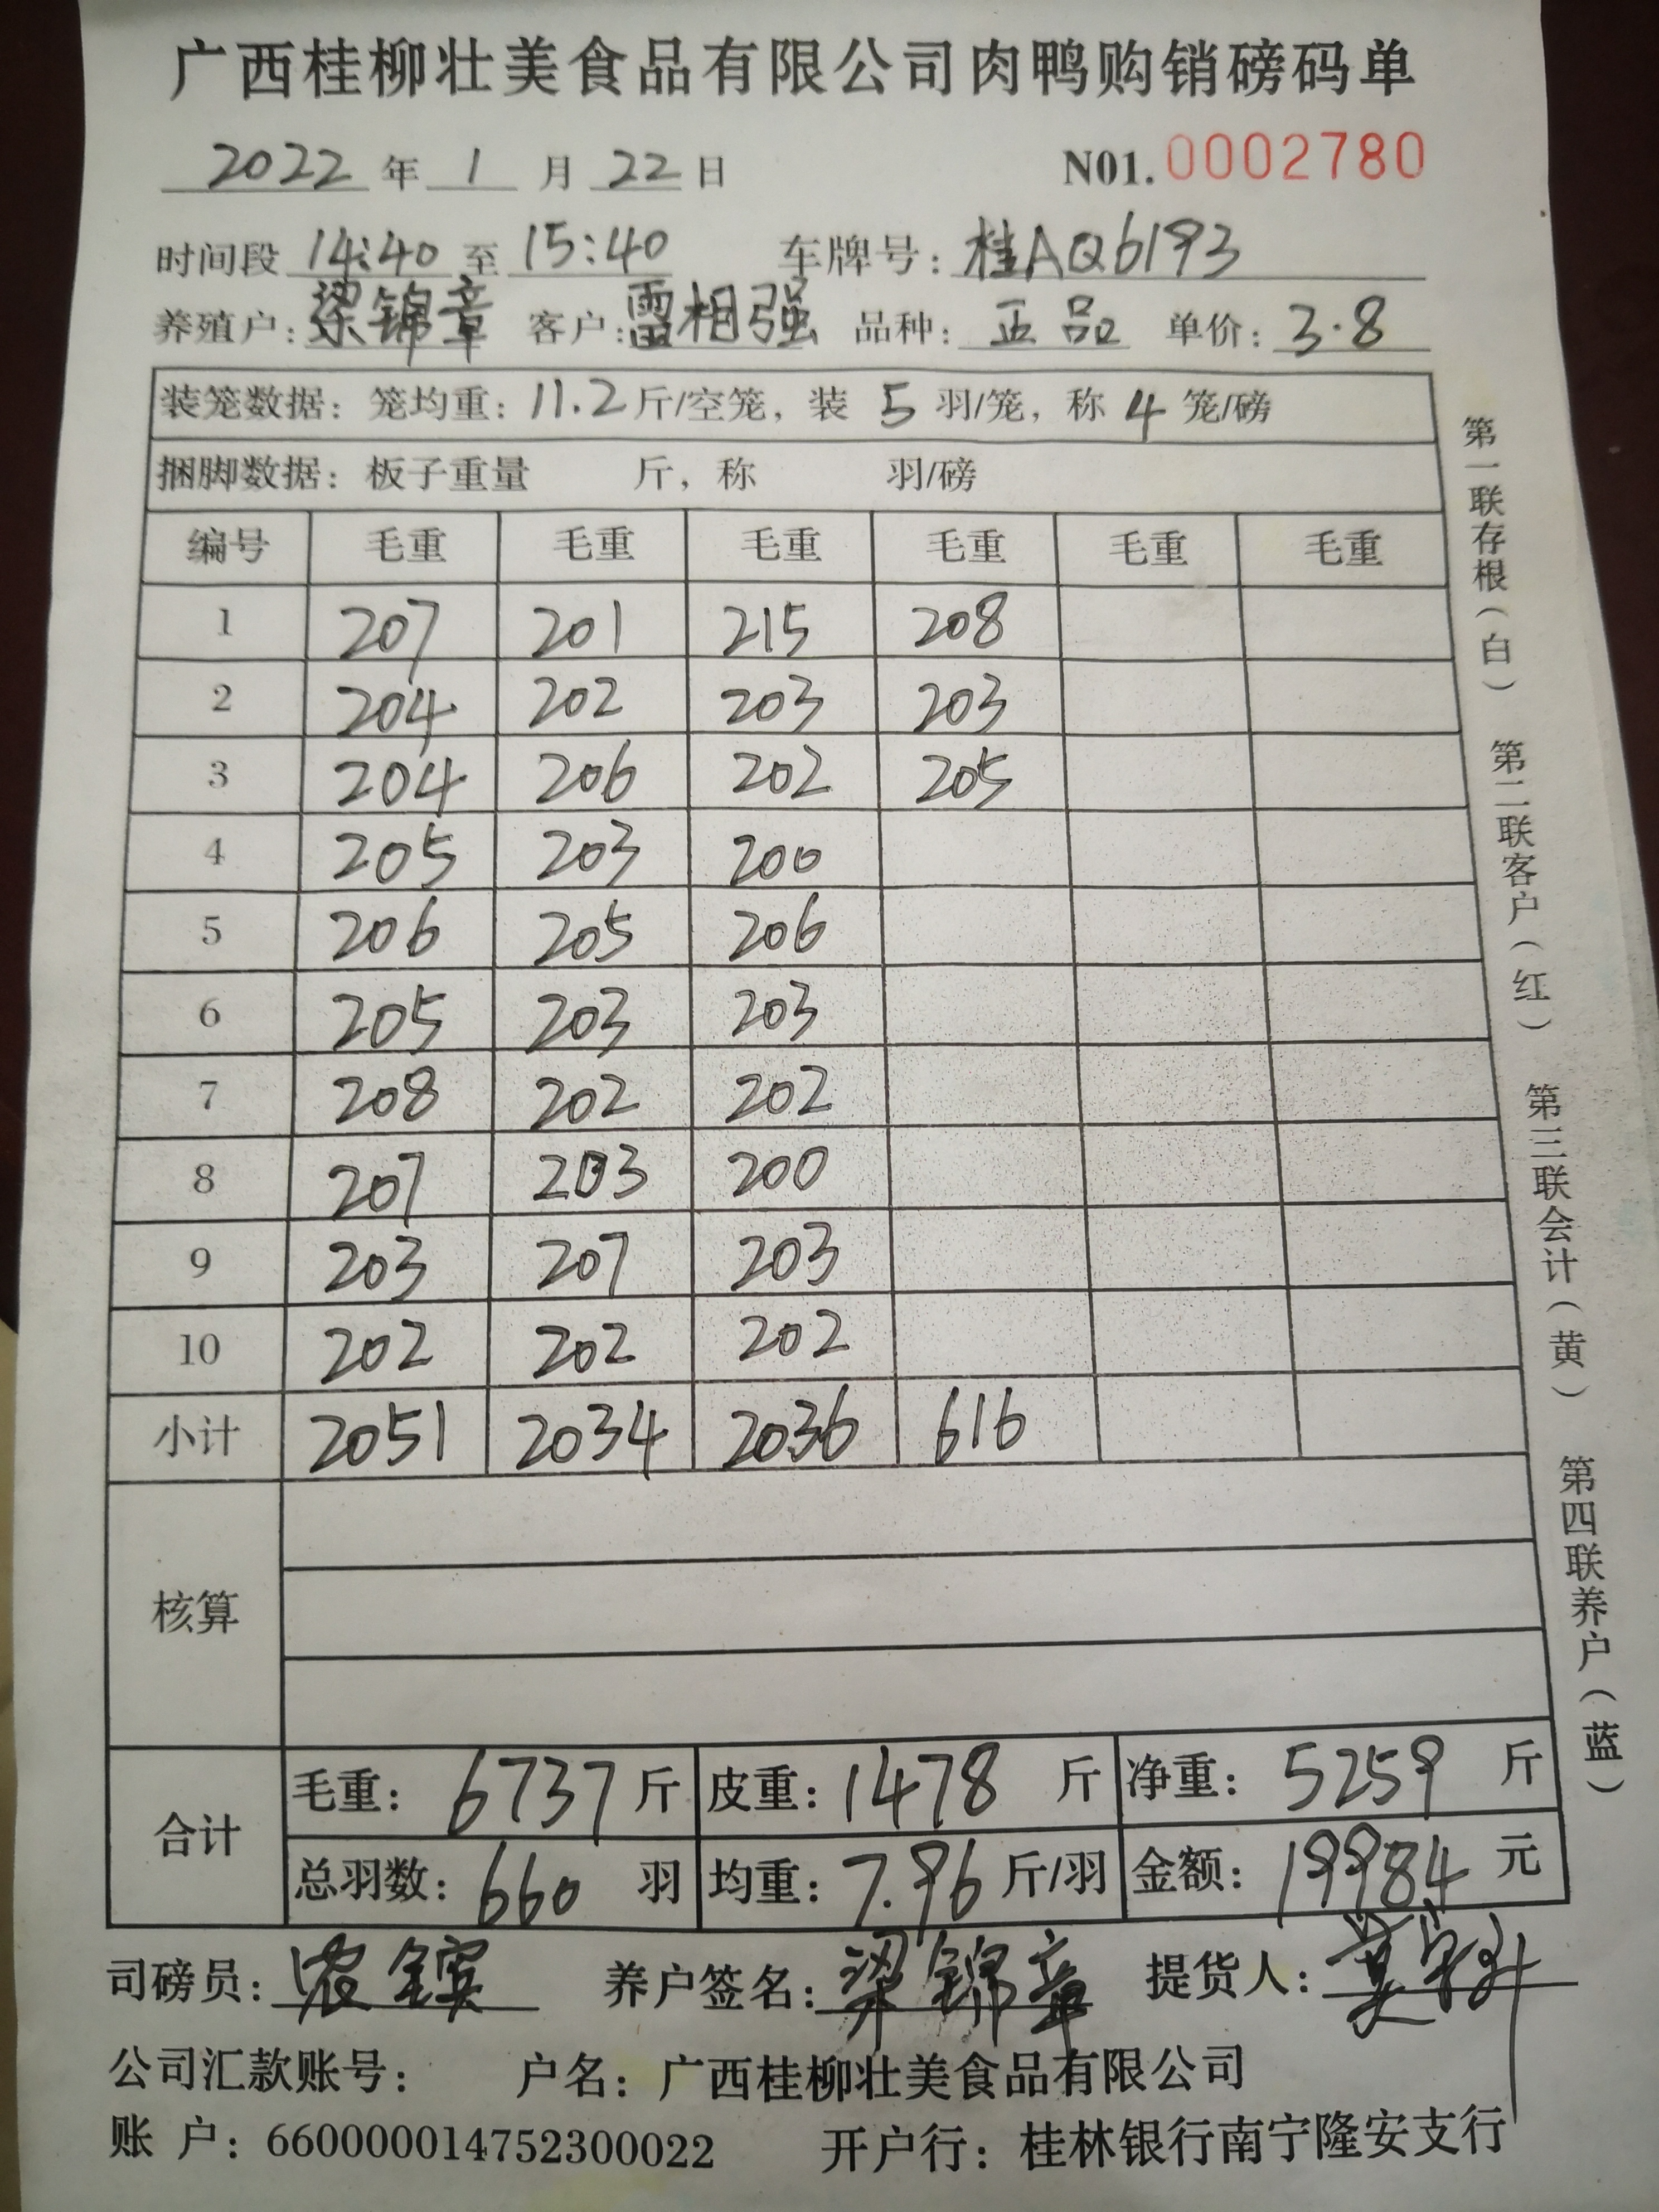 广西桂柳壮美食品有限公司肉鸭购销磅码单
2022 年 1 月 22 日 N01. 0002780
时间段 14:40 至 15:40 车牌号: 桂AQ6193
养殖户: 梁锦章 客户: 雷相强 品种: 正品 单价: 3.8
装笼数据: 笼均重: 11.2 斤/空笼, 装 5 羽/笼, 称 4 笼/磅
捆脚数据: 板子重量 斤, 称 羽/磅
编号 毛重 毛重 毛重 毛重 毛重 毛重
1 207 201 215 208
2 204 202 203 203
3 204 206 202 205
4 205 203 200
5 206 205 206
6 205 203 203
7 208 202 202
8 207 203 200
9 203 207 203
10 202 202 202
小计 2051 2034 2036 616
核算
合计
毛重: 6737 斤 皮重: 1478 斤 净重: 5259 斤
总羽数: 660 羽 均重: 7.96 斤/羽 金额: 19984 元
司磅员: 农 养户签名: 梁锦章 提货人:
公司汇款账号: 户名: 广西桂柳壮美食品有限公司
账 户: 660000014752300022 开户行: 桂林银行南宁隆安支行
第一联存根(白) 第二联客户(红) 第三联会计(黄) 第四联养户(蓝)